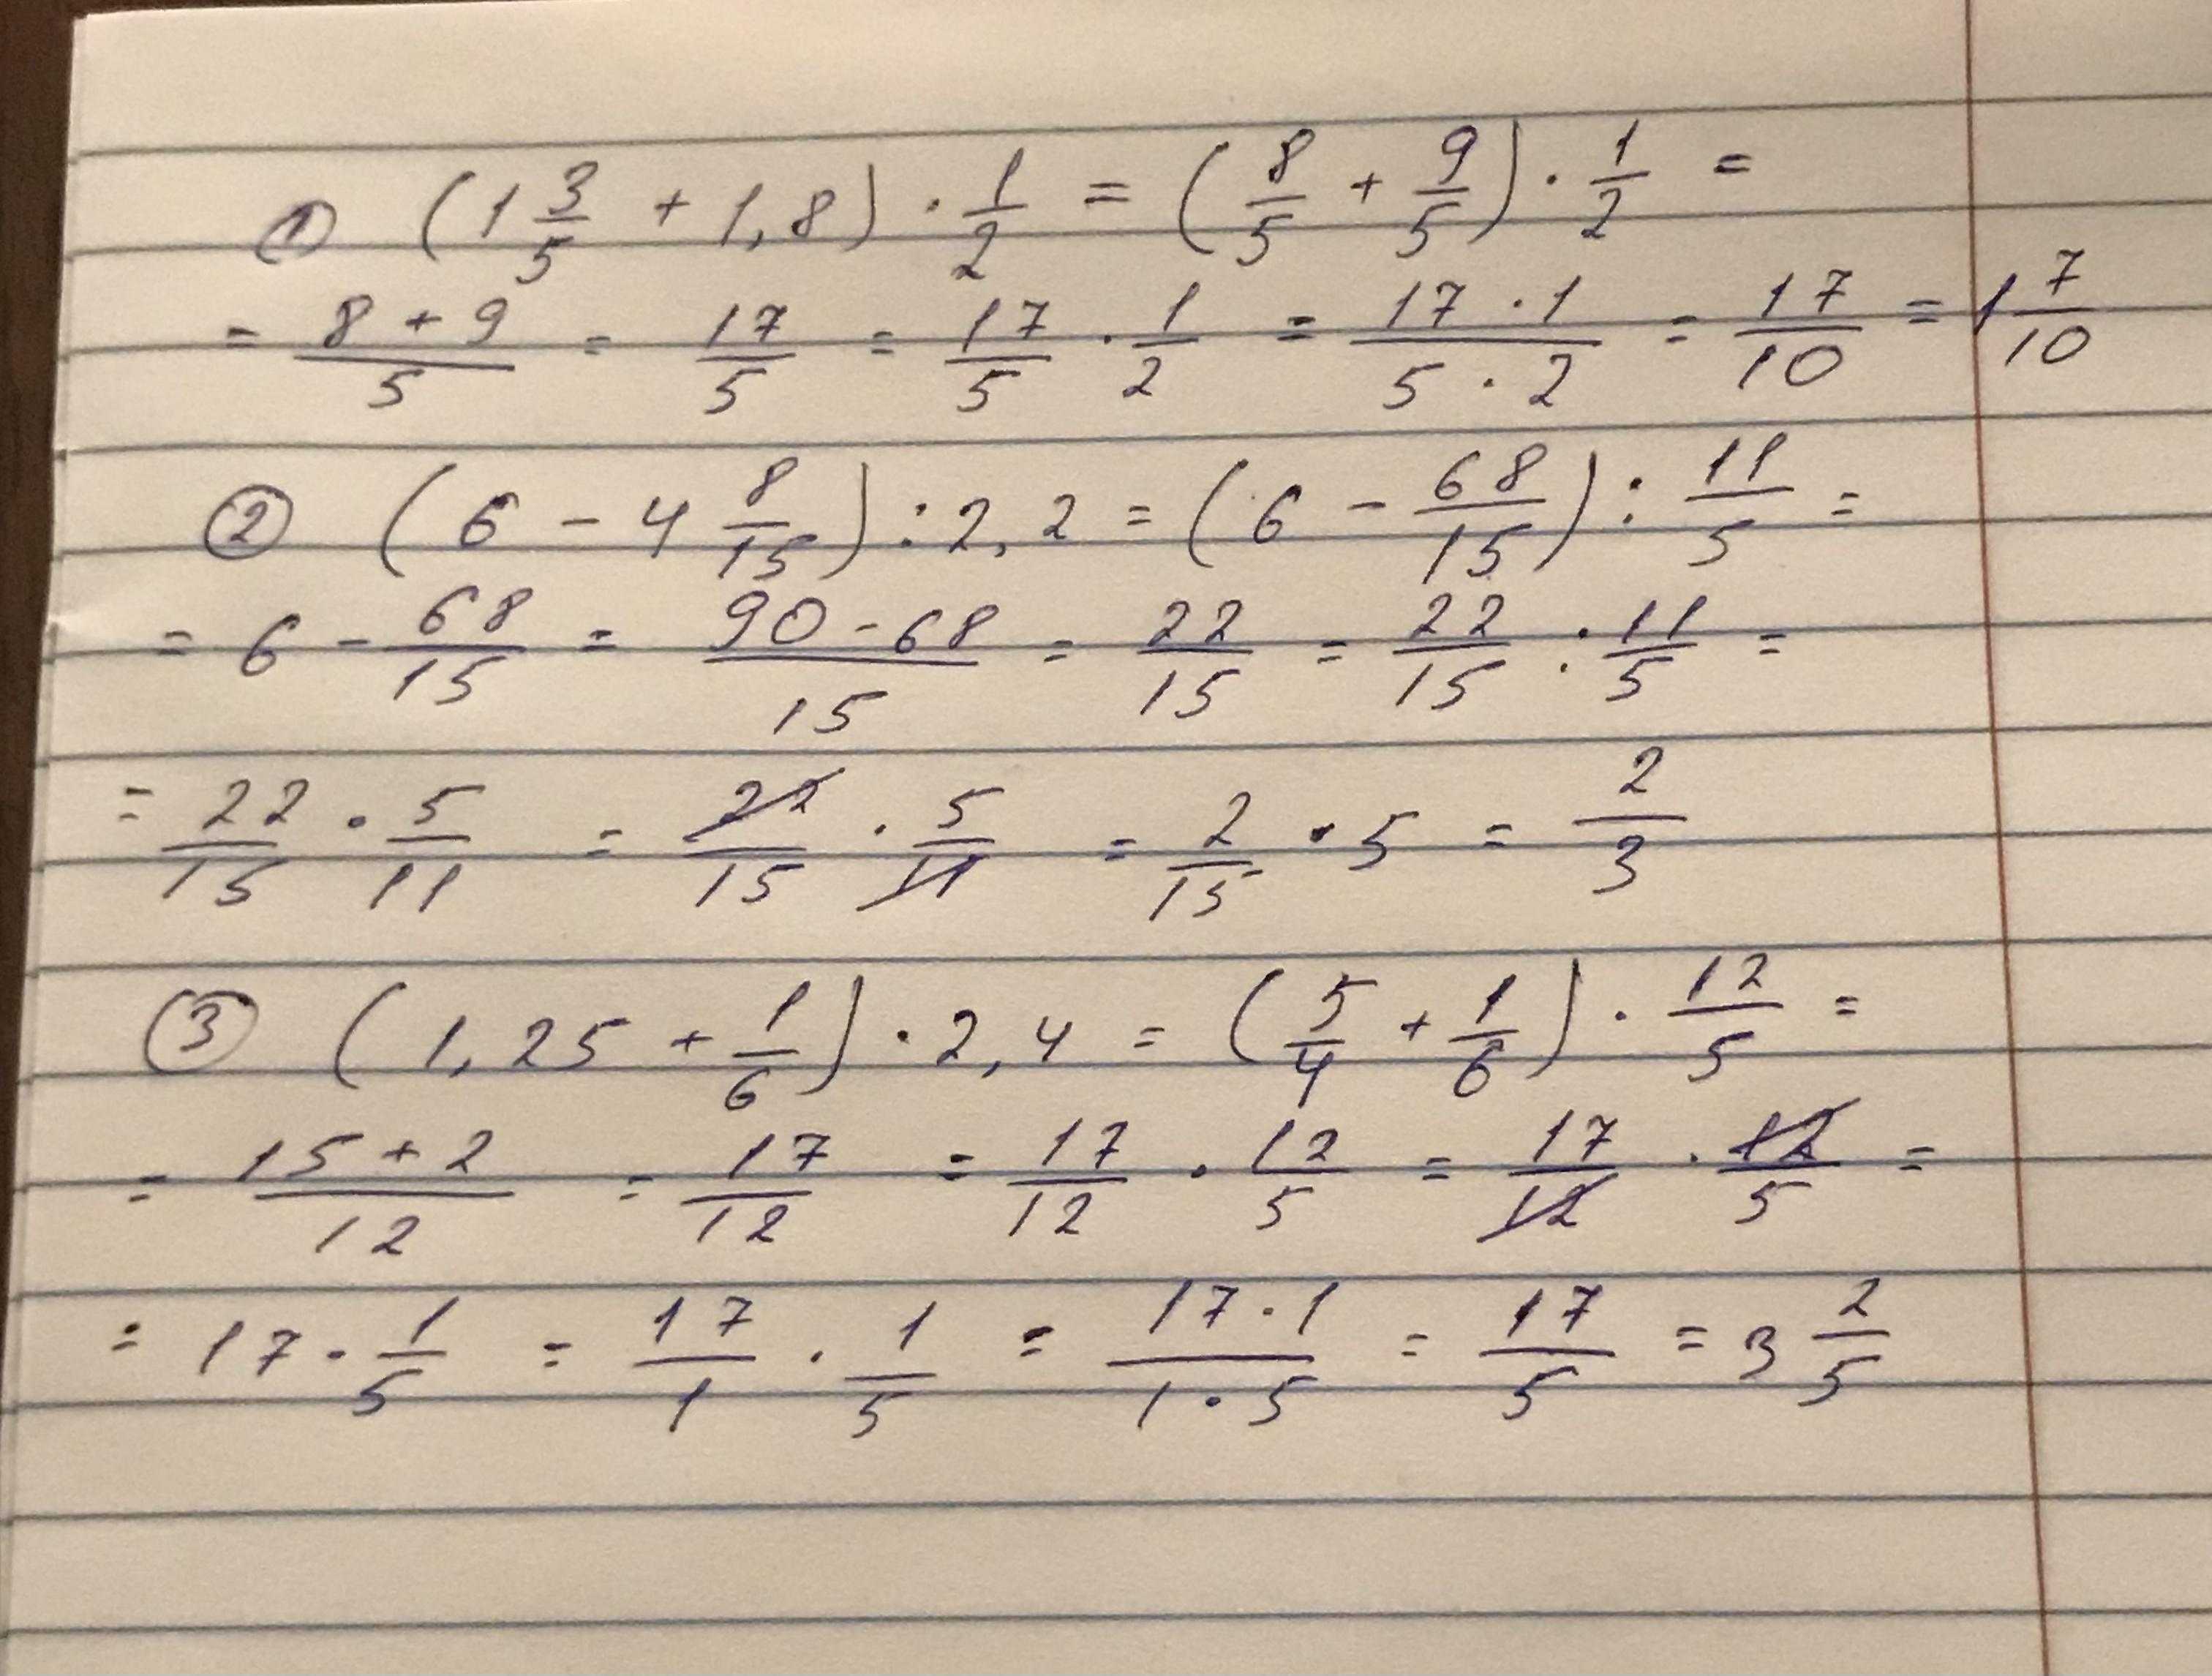 ① (1 3/5 + 1,8) · 1/2 = (8/5 + 9/5) · 1/2 =
= (8 + 9)/5 = 17/5 = 17/5 · 1/2 = (17 · 1)/(5 · 2) = 17/10 = 1 7/10
② (6 - 4 8/15) : 2,2 = (6 - 68/15) : 11/5 =
= 6 - 68/15 = (90 - 68)/15 = 22/15 = 22/15 : 11/5 =
= 22/15 · 5/11 = 22/15 · 5/11 = 2/15 · 5 = 2/3
③ (1,25 + 1/6) · 2,4 = (5/4 + 1/6) · 12/5 =
= (15 + 2)/12 = 17/12 = 17/12 · 12/5 = 17/12 · 12/5 =
= 17 · 1/5 = 17/1 · 1/5 = (17 · 1)/(1 · 5) = 17/5 = 3 2/5